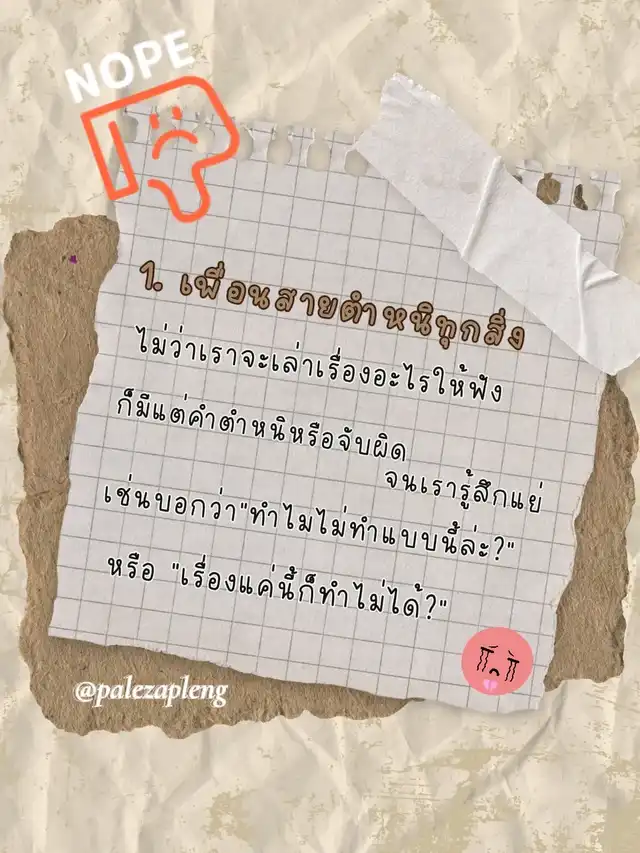 NOPE
1. เพื่อนสายตำหนิทุกสิ่ง
ไม่ว่าเราจะเล่าเรื่องอะไรให้ฟัง
ก็มีแต่คำตำหนิหรือจับผิด
จนเรารู้สึกแย่
เช่นบอกว่า"ทำไมไม่ทำแบบนี้ล่ะ?"
หรือ "เรื่องแค่นี้ก็ทำไม่ได้?"
@palezapleng